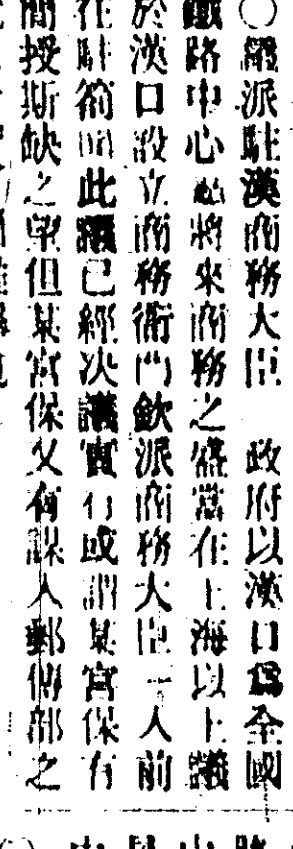 ○議派駐漢商務大臣　政府以漢口為全國
鐵路中心點將來商務之盛當在上海以上議
於漢口設立商務衙門欽派商務大臣一人前
往駐箚聞此議已經决議實行或謂某宮保有
簡授斯缺之望但某宮保又有謀入郵傳部之